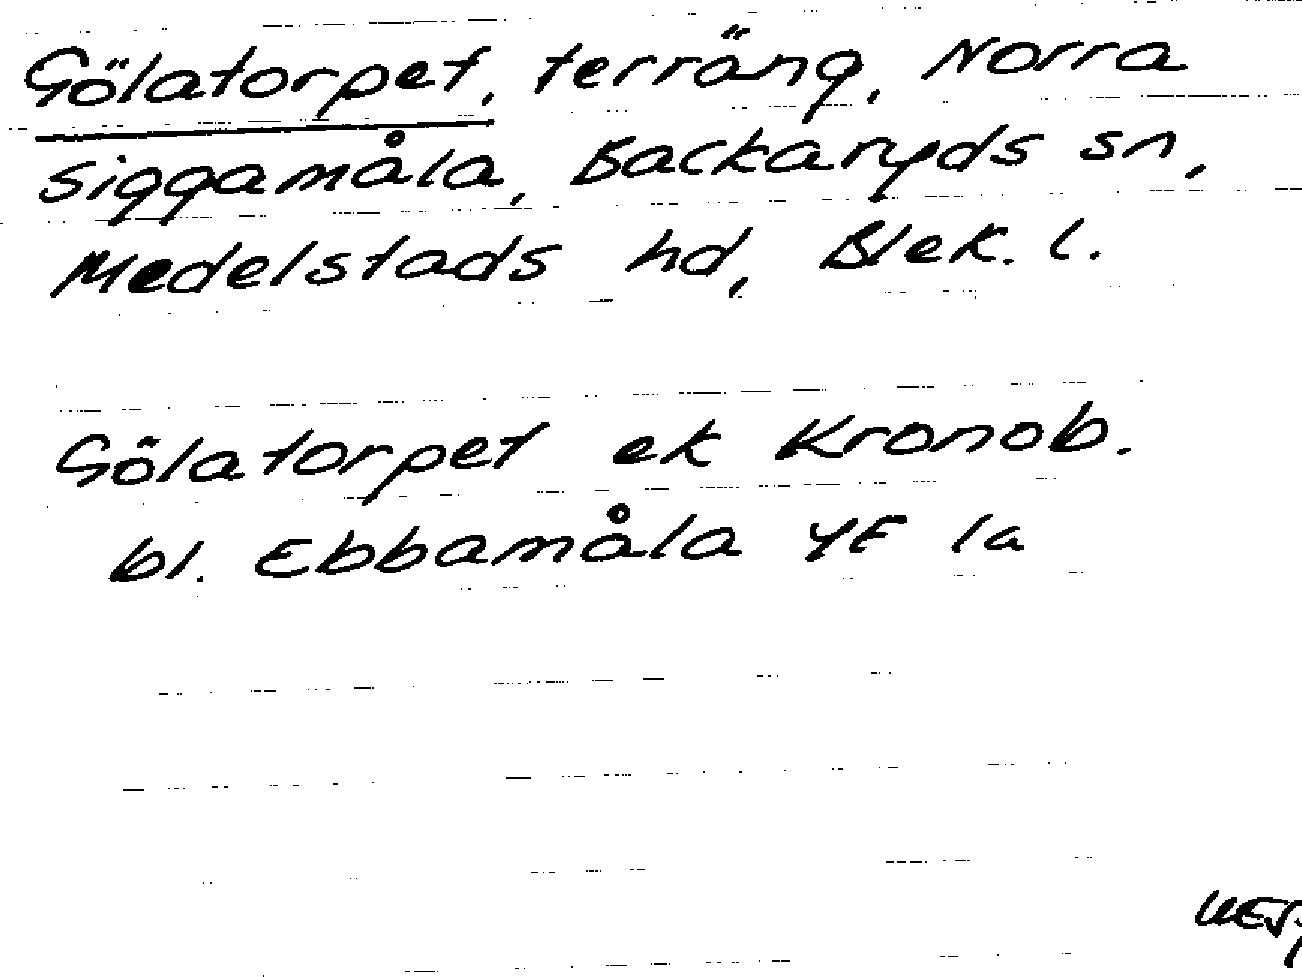 Gölatorpet, terräng, Norra
Siggamåla, Backaryds sn,
Medelstads hd, Blek. l.
Gölatorpet ek Kronob.
bl. Ebbamåla 4F 1a